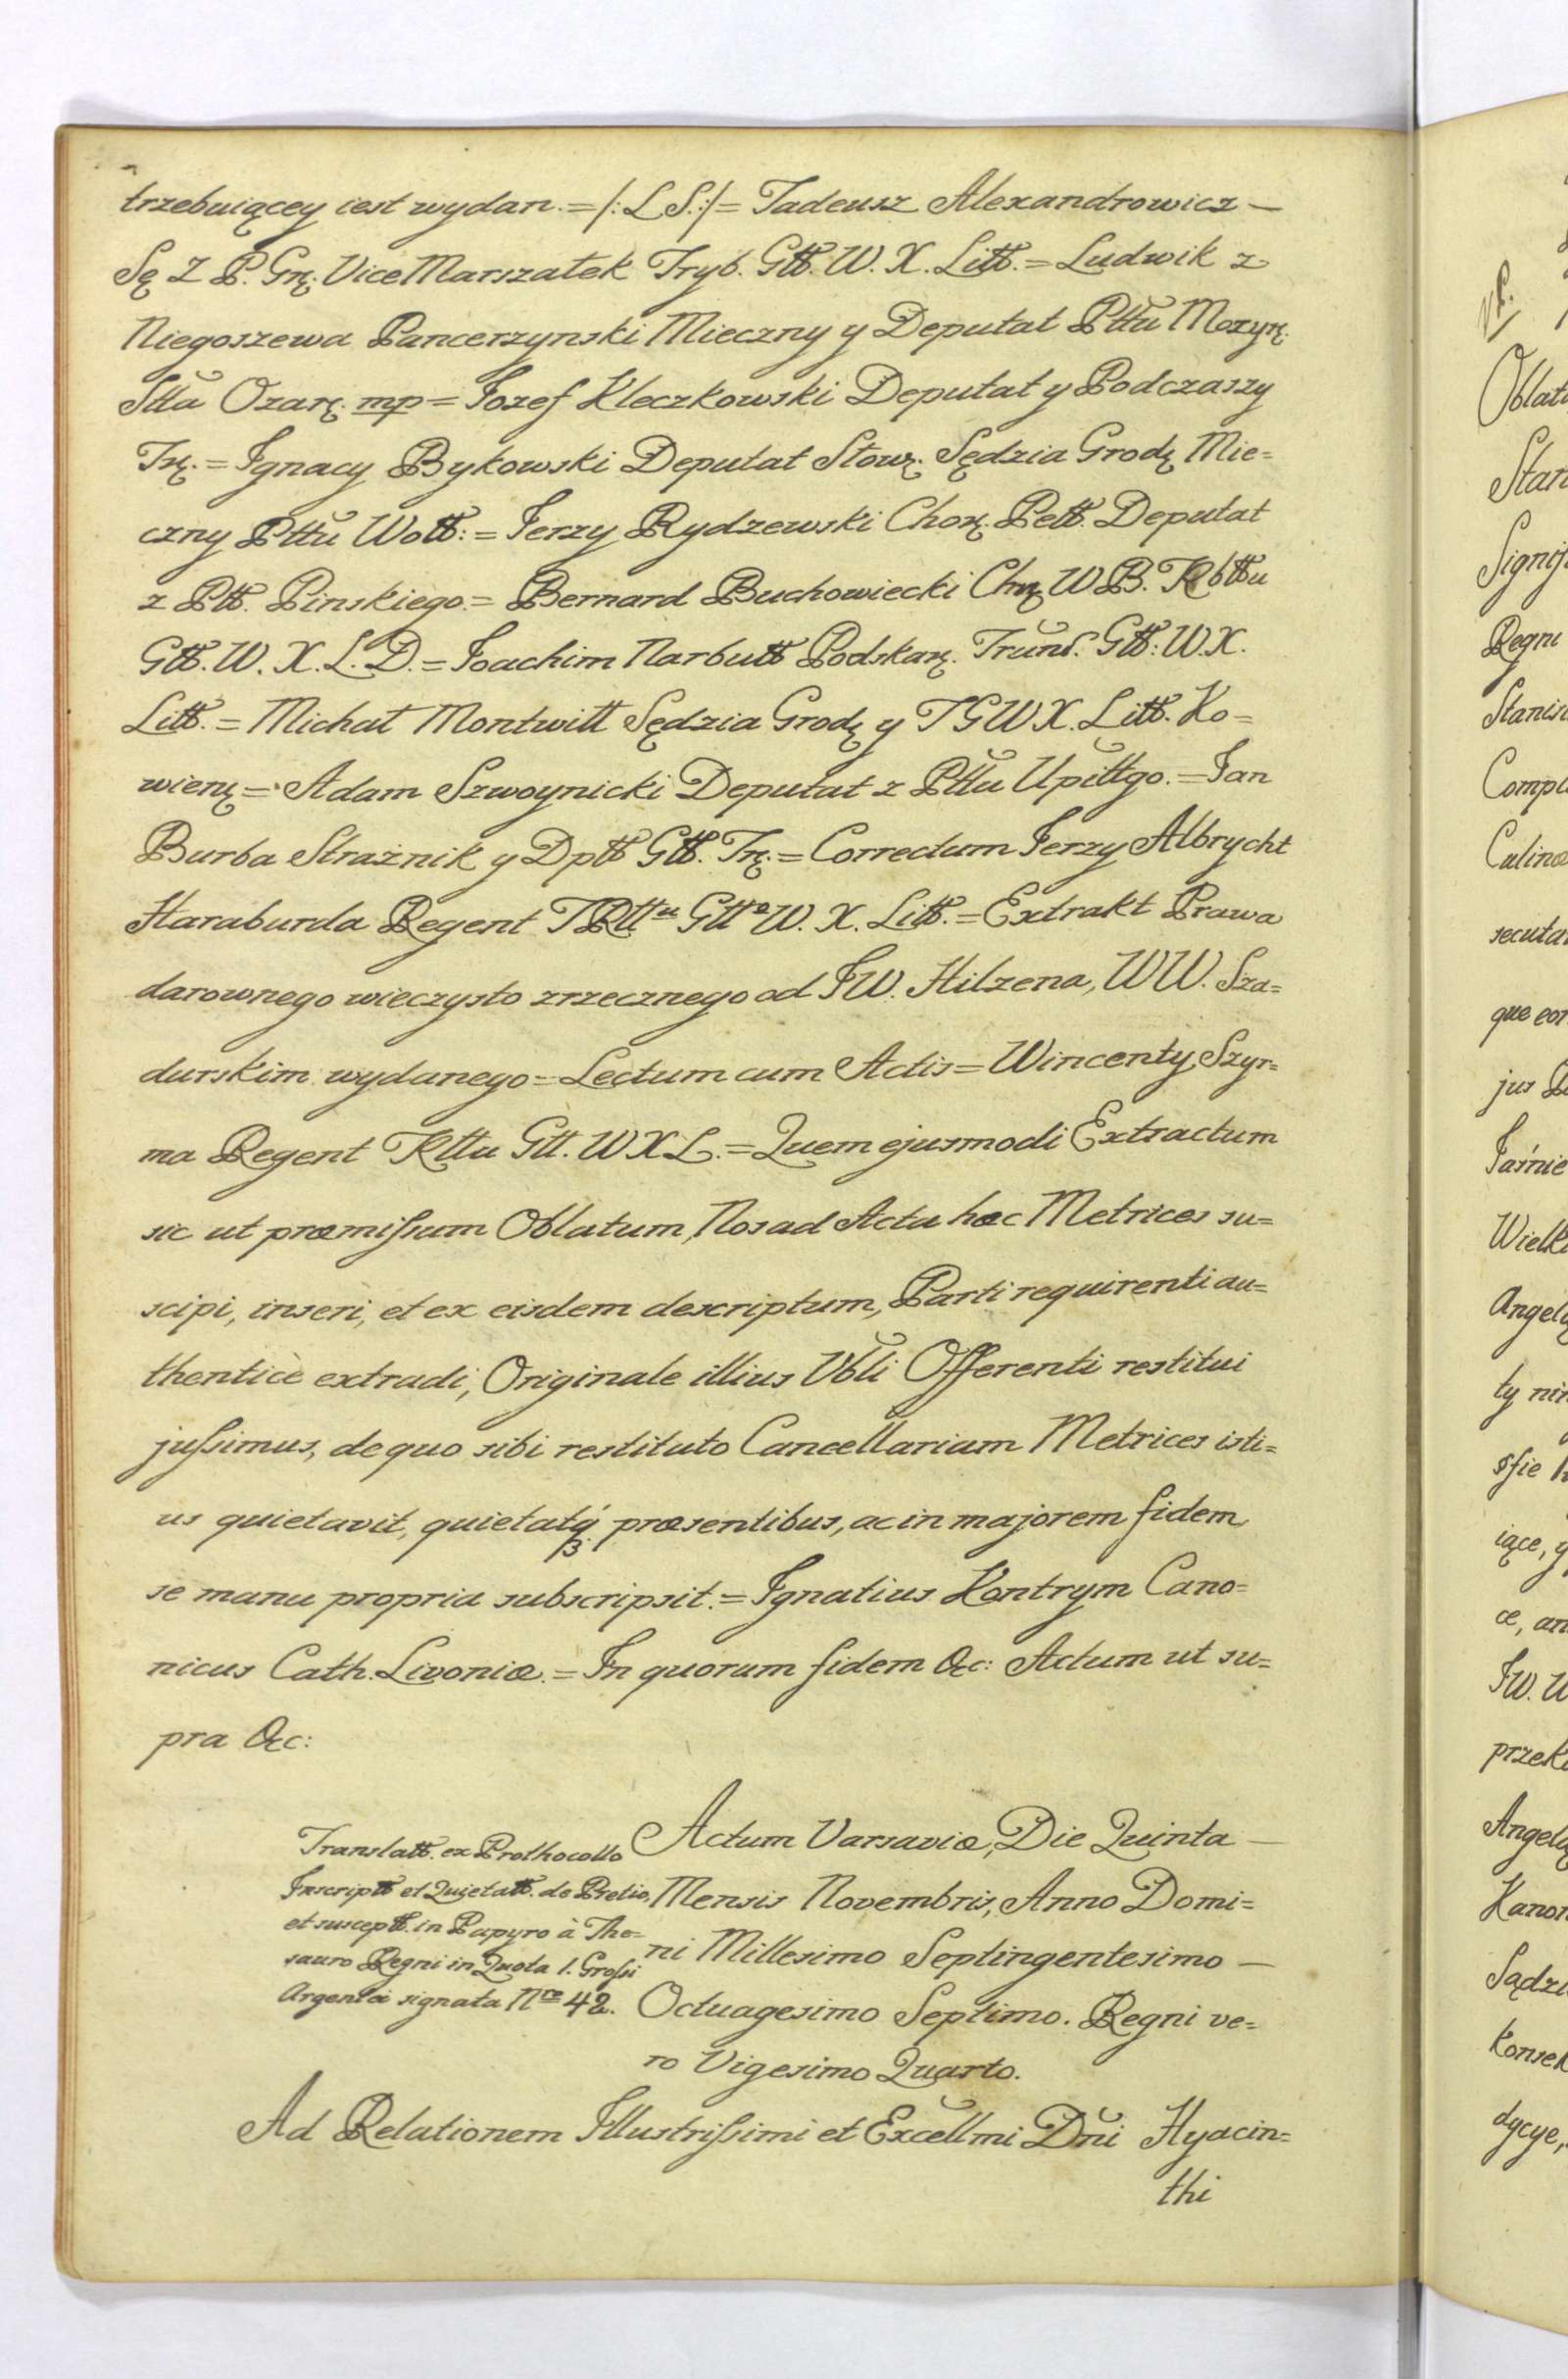 trzebuiącey iest wydan. = /: L S. :/ = Tadeusz Alexandrowicz —
Sę Z P. Grę. Vice Marszałek Tryb. Gtt. W. X. Litt. = Ludwik z
Niegoszewa Pancerzynski Mieczny y Deputat Pttu Mozyrę.
Stta Ozarę. mp = Jozef Kleczkowski Deputat y Podczaszy
Trę. = Ignacy Bykowski Deputat Słowę. Sędzia Grodę Mie=
czny Pttu Wott: = Jerzy Rydzewski Chorę. Pett. Deputat
z Ptt. Pinskiego. = Bernard Buchowiecki Chrę W B. Tbttu
Gtt. W. X. L. D. = Joachim Narbutt Podskarę. Trund. Gtt: W. X.
Litt. = Michał Montwitt Sędzia Grodę y T G W X. Litt. Ko=
wienę = Adam Szwoynicki Deputat z Pttu Upittgo. = Jan
Burba Strażnik y Dptt Gtt. Trę: = Correctum Jerzy Albrycht
Haraburda Regent TRttu Gtto W. X. Litt. = Extrakt Prawa
darownego wieczysto zrzecznego od JW. Hilzena, WW. Sza=
durskim wydanego = Lectum cum Actis = Wincenty Szyr=
ma Regent Tttu Gtt. W X L. = Quem ejusmodi Extractum
sic ut præmissum Oblatum, Nos ad Acta hæc Metrices su=
scipi, inseri, et ex eisdem descriptum, Parti requirenti au=
thenticè extradi, Originale illius Vbli Offerenti restitui
jussimus, de quo sibi restituto Cancellariam Metrices isti=
us quietavit, quietatq́ præsentibus, ac in majorem fidem
se manu propria subscripsit. = Ignatius Kontrym Cano=
nicus Cath. Livoniæ. = In quorum fidem &c: Actum ut su=
pra &c:
Translatt. ex Prothocollo
Inscriptt et Quietatt. de Pretio,
et suscept. in Papyro à The=
sauro Regni in Quota 1. Grossi
Argentei signata Nro 42.
Actum Varsaviæ, Die Quinta —
Mensis Novembris, Anno Domi=
ni Millesimo Septingentesimo —
Octuagesimo Septimo. Regni ve=
ro Vigesimo Quarto.
Ad Relationem Illustrissimi et Excellmi Dni Hyacin=
thi
Oblat
Stan
Regni
Compl
secuta
que eor
Wielk
Angel
ty nin
iące, y
JW. W
Angel
Kanon
Sądzi
dycye,